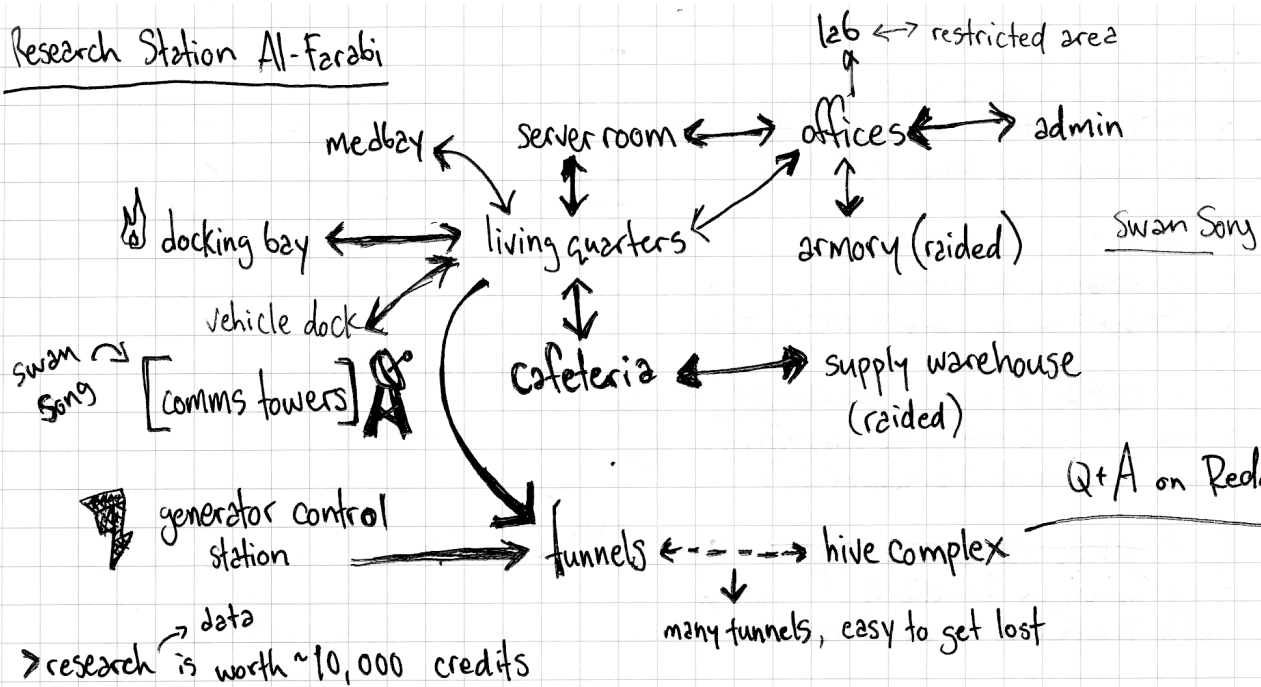 Research Station Al-Farabi
lab ↔ restricted area
medbay
server room
offices
admin
docking bay
living quarters
armory (raided)
Swan Song
vehicle dock
swan
song
[comms towers]
cafeteria
supply warehouse
(raided)
Q+A on
generator control
station
tunnels
hive complex
many tunnels, easy to get lost
data
>research is worth ~10,000 credits